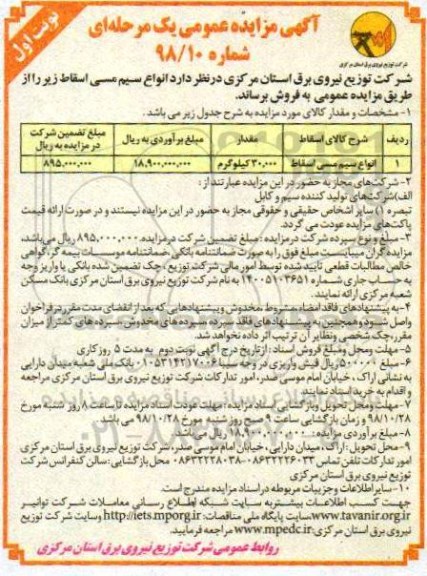 نوبت اول
آگهی مزایده عمومی یک مرحله‌ای
شماره ۹۸/۱۰
شرکت توزیع نیروی برق استان مرکزی
شرکت توزیع نیروی برق استان مرکزی درنظر دارد انواع سیم مسی اسقاط زیر را از
طریق مزایده عمومی به فروش برساند.
۱- مشخصات و مقدار کالای مورد مزایده به شرح جدول زیر می باشد.
ردیف شرح کالای اسقاط مقدار مبلغ برآوردی به ریال مبلغ تضمین شرکت در مزایده به ریال
۱ انواع سیم مسی اسقاط ۳۰.۰۰۰ کیلوگرم ۱۸,۹۰۰,۰۰۰,۰۰۰ ۸۹۵,۰۰۰,۰۰۰
۲- شرکت‌های مجاز به حضور در این مزایده عبارتند از:
الف) شرکت‌های تولید کننده سیم و کابل
تبصره ۱) سایر اشخاص حقیقی و حقوقی مجاز به حضور در این مزایده نیستند و در صورت ارائه قیمت
پاکت‌های مزایده عودت می گردد.
۳- مبلغ و نوع سپرده شرکت درمزایده: مبلغ تضمین شرکت درمزایده، ۸۹۵,۰۰۰,۰۰۰ ریال می‌باشد،
مزایده گران میبایست مبلغ فوق را به صورت ضمانتنامه بانکی، ضمانتنامه موسسات بیمه گر، گواهی
خالص مطالبات قطعی تایید شده توسط امور مالی شرکت توزیع، چک تضمین شده بانکی یا واریز وجه
به حساب جاری شماره ۱۴۰۰۵۱۰۳۶۵۱ به نام شرکت توزیع نیروی برق استان مرکزی بانک مسکن
شعبه مرکزی ارائه نمایند.
۴- به پیشنهادهای فاقد امضاء، مشروط، مخدوش و پیشنهادهایی که بعد از انقضای مدت مقرر در فراخوان
واصل شود و همچنین به پیشنهادهای فاقد سپرده، سپرده های مخدوش، سپرده های کمتر از میزان
مقرر، چک شخصی ونظایر آن ترتیب اثر داده نخواهد شد.
۵- مهلت ومحل ومبلغ فروش اسناد: از تاریخ درج آگهی نوبت دوم به مدت ۵ روز کاری
۶- مبلغ ۵۰۰,۰۰۰ ریال فیش واریزی در وجه سیبا ۰۱۰۵۳۱۴۲۱۷۰۰۶ بانک ملی شعبه میدان دارایی
به نشانی اراک، خیابان امام موسی صدر، امور تدارکات شرکت توزیع نیروی برق استان مرکزی مراجعه
و اقدام به خرید اسناد نمایند.
۷- مهلت ومحل تحویل وبازگشایی اسناد مزایده: مهلت عودت اسناد مزایده تا ساعت ۸ روز شنبه مورخ
۹۸/۱۰/۲۸ و زمان بازگشایی ساعت ۹ صبح روز شنبه مورخ ۹۸/۱۰/۲۸ می باشد
۸- مبلغ برآوردی مزایده: ۱۸,۹۰۰,۰۰۰,۰۰۰ ریال می باشد
۹- محل تحویل: اراک، میدان دارایی، خیابان امام موسی صدر، شرکت توزیع نیروی برق استان مرکزی
امور تدارکات تلفن تماس ۰۸۶۳۲۲۲۶۰۳۳-۰۸۶۳۲۲۲۸۰۳۸ محل بازگشایی: سالن کنفرانس شرکت
توزیع نیروی برق استان مرکزی
۱۰- سایر اطلاعات وجزییات مربوطه دراسناد مزایده مندرج است.
جهت کسب اطلاعات بیشتر به سایت شبکه اطلاع رسانی معاملات شرکت توانیر
www.tavanir.org.ir، سایت پایگاه ملی مناقصات: http://iets.mporg.ir و سایت شرکت توزیع
نیروی برق استان مرکزی: www.mpedc.ir مراجعه فرمایید.
روابط عمومی شرکت توزیع نیروی برق استان مرکزی